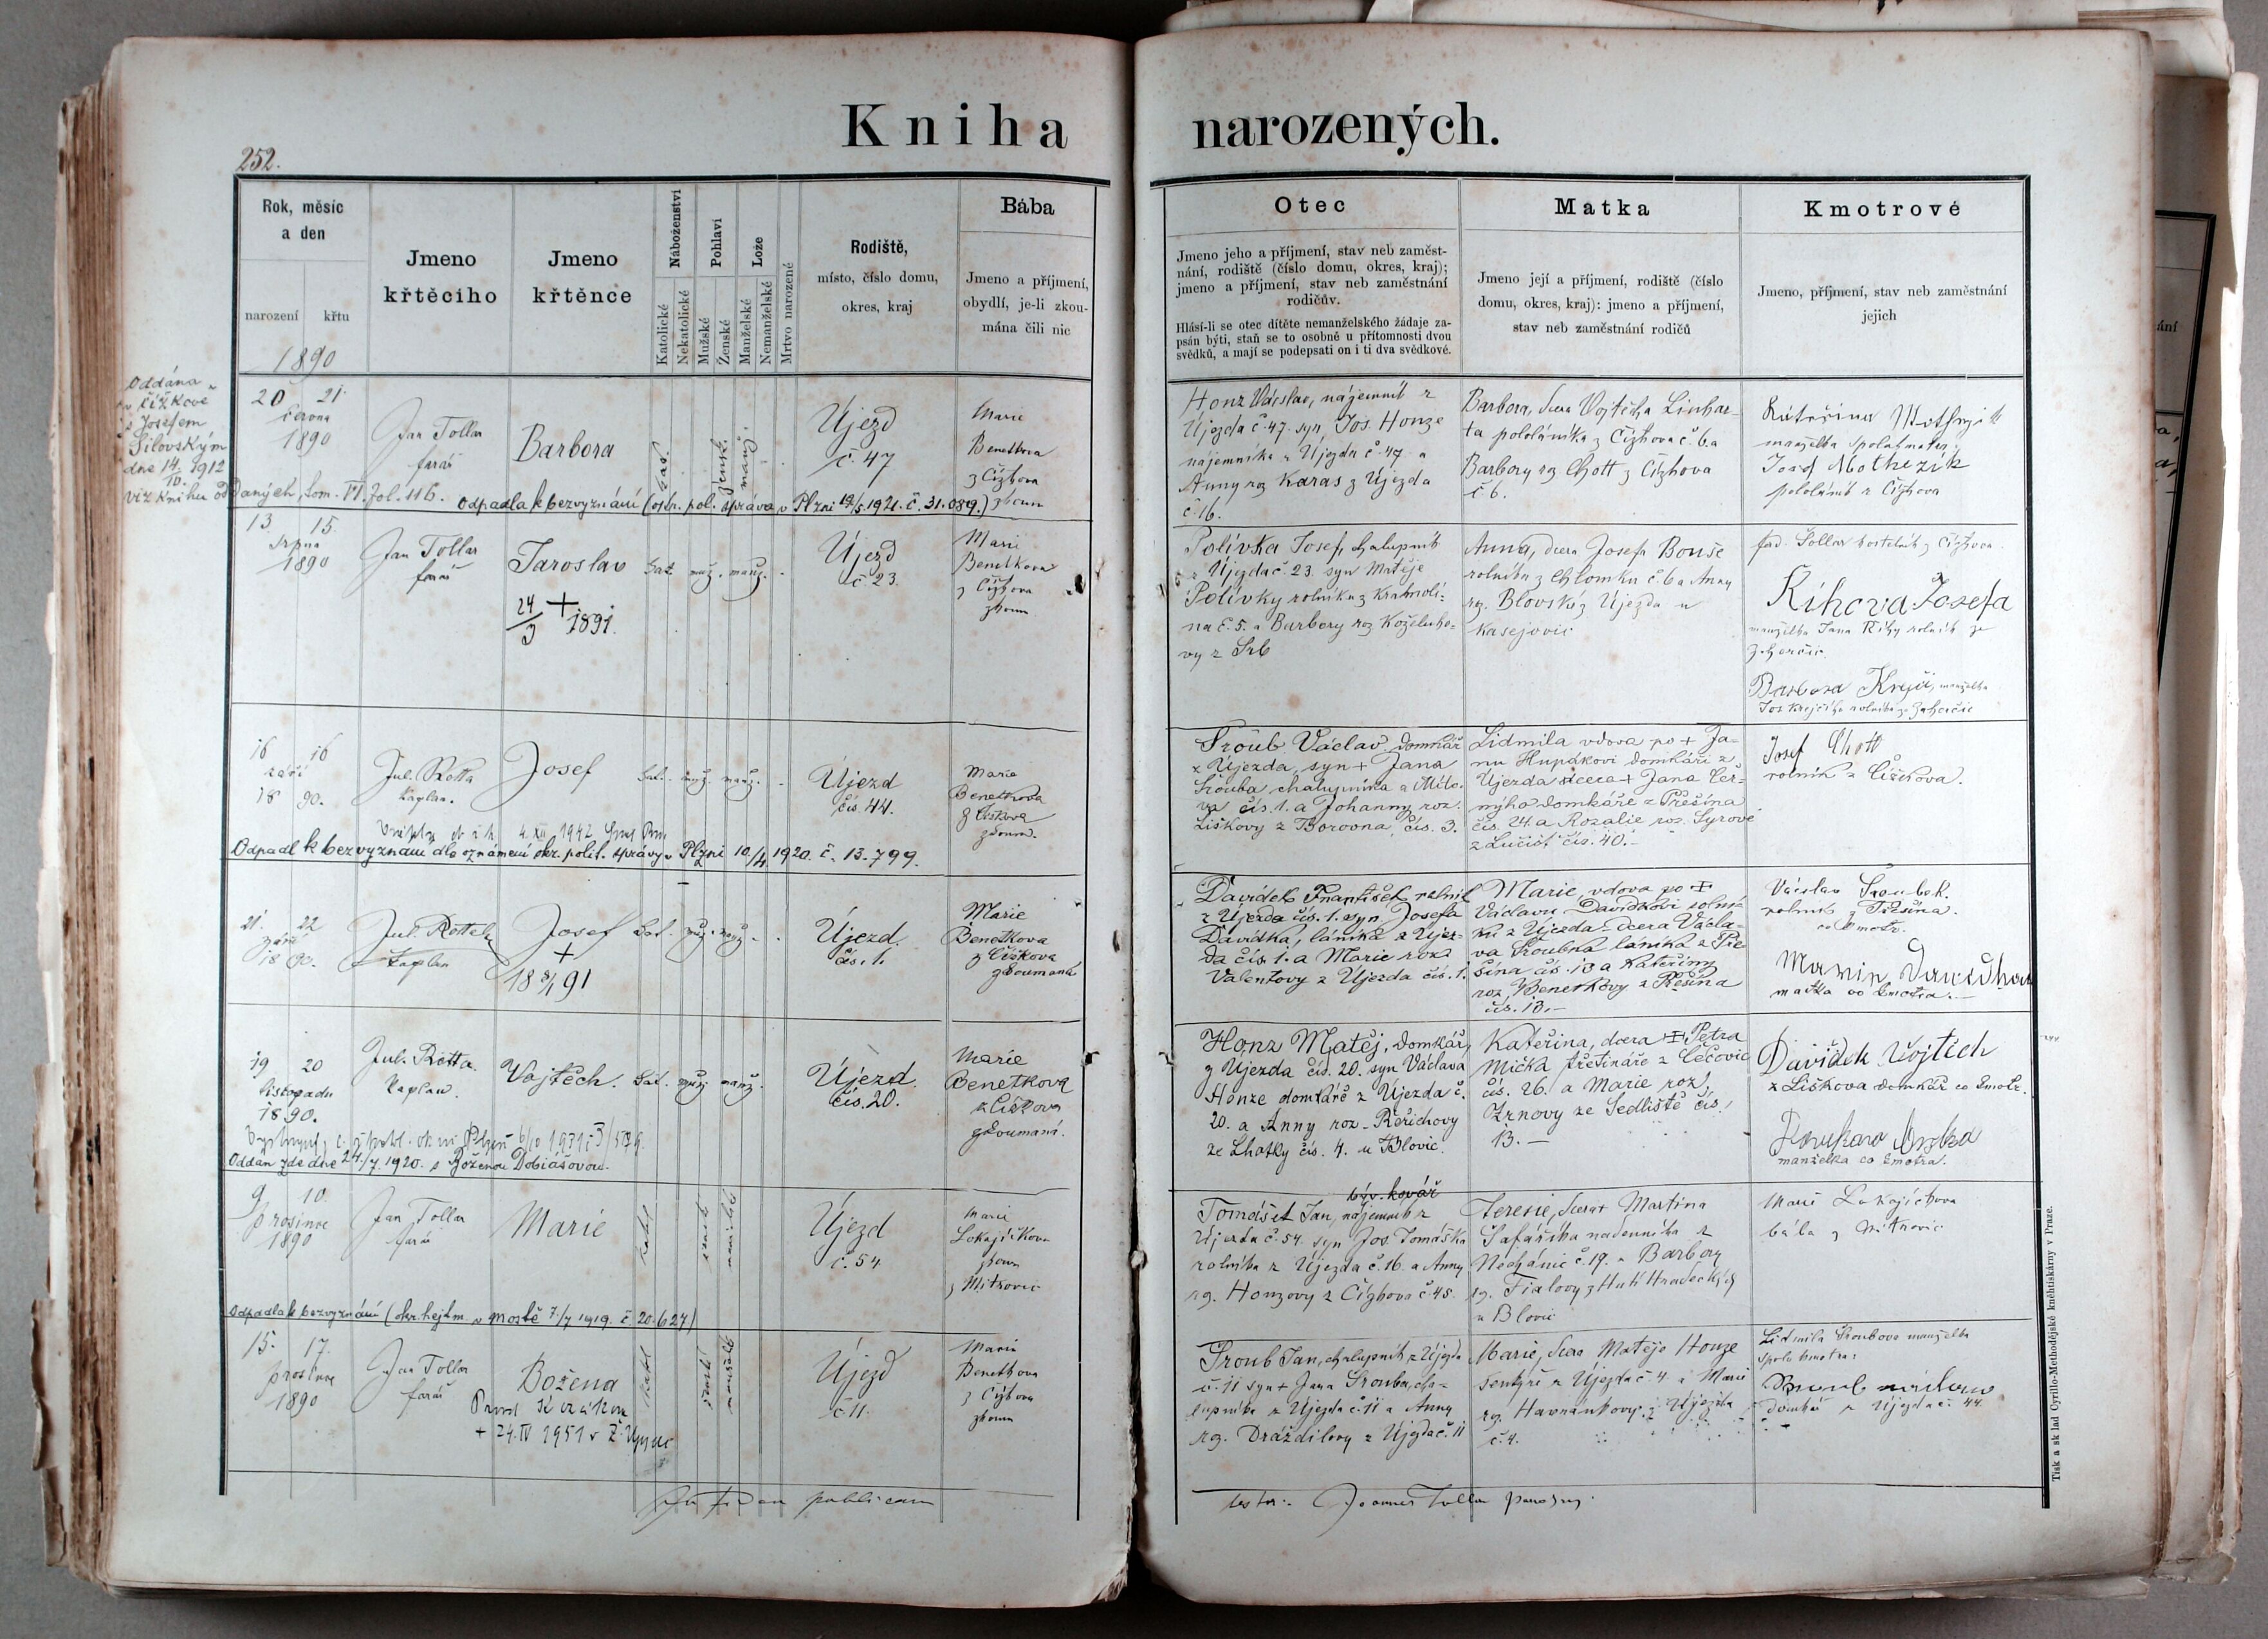 Kniha narozených.
252.
Rok, měsíc
a den
narození křtu
1890
Jmeno
křtěcího
Jmeno
křtěnce
Náboženství
Katolické
Nekatolické
Pohlaví
Mužské
Ženské
Lože
Manželské
Nemanželské
Mrtvo narozené
Rodiště,
místo, číslo domu,
okres, kraj
Bába
Jmeno a příjmení,
obydlí, je-li zkou-
mána čili nic
Otec
Jmeno jeho a příjmení, stav neb zaměst-
nání, rodiště (číslo domu, okres, kraj);
jmeno a příjmení, stav neb zaměstnání
rodičův.
Hlásí-li se otec dítěte nemanželského žádaje za-
psán býti, staň se to osobně u přítomnosti dvou
svědků, a mají se podepsati on i ti dva svědkové.
Matka
Jmeno její a příjmení, rodiště (číslo
domu, okres, kraj): jmeno a příjmení,
stav neb zaměstnání rodičů
Kmotrové
Jmeno, příjmení, stav neb zaměstnání
jejich
Oddána
v Čížkově
s Josefem
Silovským
dne 14/10. 1912
viz knihu oddaných, tom. VI. fol. 116.
20 21
června
1890
Jan Tollar
farář
Barbora
kat.
žensk.
manž.
Újezd
č. 47
Marie
Benetkova
z Čížkova
zkoum
Odpadla k bezvyznání (okr. pol. správa v Plzni 19/5. 1921. č. 31.089.)
Honz Václav, nájemník z
Újezda č. 47. syn Jos. Honze
nájemníka z Újezda č. 47 a
Anny roz Karas z Újezda
č. 16.
Barbora, dcera Vojtěcha Linhar-
ta pololáníka z Čížkova č. 6 a
Barbory roz Chott z Čížkova
č 6.
Kateřina
manželka
Josef
pololáník z Čížkova
13. 15.
srpna
1890
Jan Tollar
farář
Jaroslav
24/3 + 1891.
kat. muž. manž.
Újezd
č. 23.
Marie
Benetkova
z Čížkova
zkoum
Polívka Josef, chalupník
z Újezda č. 23. syn Matěje
Polívky rolníka z
na č. 5. a Barbory roz Koželuho-
vy z Srb
Anna, dcera Josefa Bouše
rolníka z Chlomku č. 6 a Anny
roz. Blovské z Újezda u
Kasejovic
kostelník z Čížkova.
Říhova Josefa
manželka Jana Říhy rolník ze
Barbora Krejčí, manželka
Jos Krejčího rolníka ze
16 16
září
18 90.
Jul. Rotta
kaplan.
Josef
kat. muž. manž.
Újezd
čís. 44.
Marie
Benetkova
z Čížkova
zkoum.
4. XII 1942
Odpadl k bezvyznání dle oznámení okr. polit. správy v Plzni 10./4. 1920. č. 13.799.
Šroub Václav domkář
z Újezda, syn + Jana
Šrouba chalupníka z Míto-
va čís. 1. a Johanny roz.
Liškovy z Borovna, čís. 3.
Lidmila vdova po + Ja-
nu Hupákovi domkáři z
Újezda dcera + Jana Čer-
nýho domkáře z Přešína
čís. 24. a Rozalie roz. Syrové
z Lučišť čís. 40.-
Josef Chott
rolník z Čížkova.
21. 22
září
18 90.
Jul. Rotta
kaplan
Josef
+
18 91
kat. muž. manž.
Újezd.
čís. 1.
Marie
Benetkova
z Čížkova
zkoumaná
Davídek František rolník
z Újezda čís. 1. syn Josefa
Davídka, láníka z Újez-
da čís. 1. a Marie roz.
Valentovy z Újezda čís. 1.
Marie, vdova po +
Václavu Davídkovi rolní-
ku z Újezda. dcera Václa-
va Šroubka láníka z Pře-
šína čís. 13 a Kateřiny
roz. Benetkovy z Přešína
čís. 13.-
Václav Šroubek.
rolník z Přešína.
co kmotr.
co kmotra.-
19 20
listopadu
18 90.
Jul. Rotta.
kaplan.
Vojtěch.
kat. muž. manž.
Újezd.
čís. 20.
Marie
Benetková
z Čížkova
zkoumaní.
Oddán zde dne 27./7. 1920. s Boženou Dobiášovou.
Honz Matěj, domkář,
z Újezda čís. 20. syn Václava
Honze domkáře z Újezda č.
20. a Anny roz. Řeřichovy
ze Lhotky čís. 4. u Blovic.
Kateřina, dcera + Petra
Mička z Čečovic
čís. 26. a Marie roz.
Zrnovy ze Sedliště čís.
13. -
Davídek Vojtěch
z Čížkova domkář co kmotr.
manželka co kmotra.
9. 10.
prosince
1890
Jan Tollar
farář
Marie
Újezd
č. 54
Marie
Lokajíčkova
zkoum
z Mítkovic
Odpadla k bezvyznání (okr. hejtm. v Mostě 7./7 1919. č. 20.627)
býv. kovář
Tomášek Jan, nájemník z
Újezda č. 54. syn Jos. Tomáška
rolníka z Újezda č. 16. a Anny
rz. Honzovy z Čížkova č. 45.
Terezie, dcera Martina
Šafaříka nadenníka z
Nechánic č. 19. a Barbory
rz. Fialovy z Hutí Hradeckých
u Blovic
Marie Lokajíčkova
bába z Mítkovic
15. 17.
prosince
1890
Jan Tollar
farář
Božena
+ 24. IV 1951 v
Újezd
č 11.
Marie
Benetkova
z Čížkova
zkoum
Šroub Jan, chalupník z Újezda
č. 11 syn + Jana Šrouba, cha-
lupníka z Újezda č. 11 a Anny
rz. Draždilovy z Újezda č. 11
Marie, dcera Matěje Honze
z Újezda č. 4. a Marie
rz. Havránkovy z Újezda
č. 4.
Lidmila Šroubova manželka
spolukmotra:
domkář z Újezda č. 44.
publicam
Joannes Tollar
Tisk a sklad Cyrillo-Methodějské kněhtiskárny v Praze.